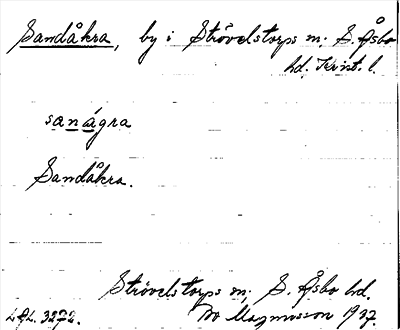 Sandåkra, by i Strövelstorps sn; S. Åsbo
hd; Krist. l.
sanágra
Sandåkra.
Strövelstorps sn; S. Åsbo hd.
LAL. 3272. Bo Magnusson 1937